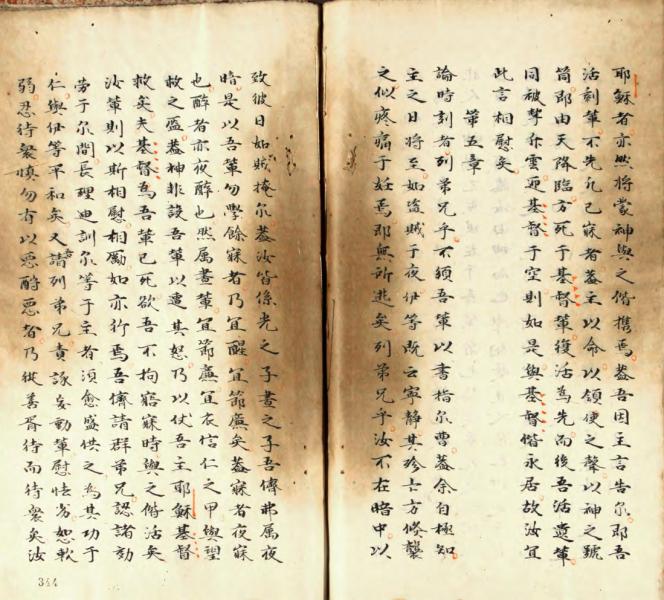 耶穌者亦然將蒙神與之偕攜焉蓋吾因主言告尔即吾
活剩輩不先凡已寐者蓋主以命以領使之聲以神之號
筒即由天降臨方死于基督輩復活為先而後吾活遺輩
同被擧升雲迎基督于空則如是與基督偕永居故汝宜
此言相慰矣
第五章
論時刻者列弟兄乎不須吾輩以書指尔曹蓋余自極知
主之日將至如盜賊于夜伊等既云寧静其殄亡方倏襲
之似疼痛于妊焉即無所逃矣列弟兄乎汝不在暗中以
致彼日如賊掩尔蓋汝皆係光之子晝之子吾儕弗属夜
暗是以吾輩勿學餘寐者乃宜醒宜節廉矣蓋寐者夜寐
也醉者亦夜醉也然属晝輩宜節廉宜衣信仁之甲與望
救之盔蓋神非設吾輩以遭其怒乃以仗吾主耶穌基督
救矣夫基督為吾輩已死欲吾不拘寤寐時與之偕活矣
汝輩則以斯相慰相勵如亦行焉吾儕請群弟兄認諸効
勞于尔間長理迪訓尔等于主者須愈盛供之為其功于
仁與伊等平和矣又請列弟兄責諑妄動輩慰怯劣恕軟
弱忍待衆慎勿有以惡酧惡者乃從善胥待而待衆矣汝
344